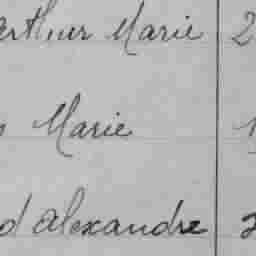 Arthur Marie 2
Marie
d alexandre 2